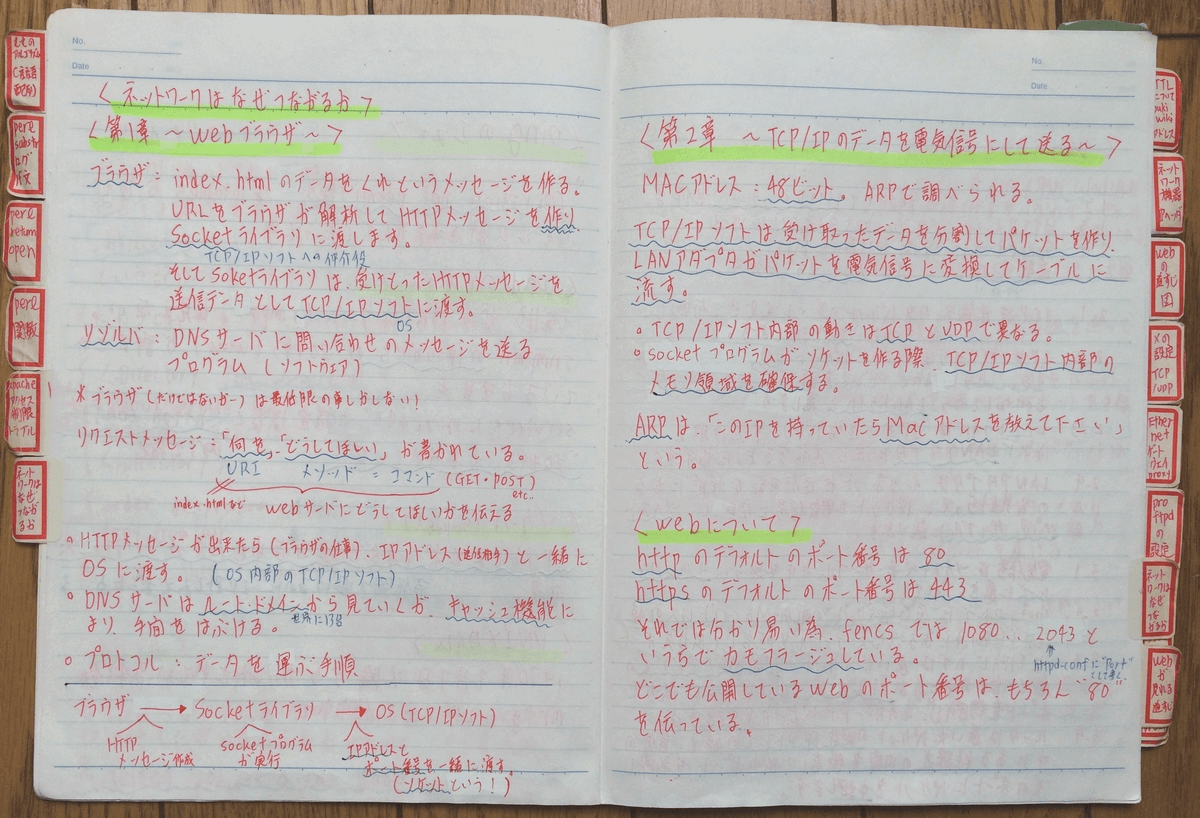 No.
Date
〈ネットワークはなぜつながるか〉
〈第1章 ～Webブラウザ～〉
ブラウザ：index.htmlのデータをくれというメッセージを作る。
URLをブラウザが解析してHTTPメッセージを作り
Socketライブラリに渡します。
TCP/IPソフトへの仲介役
そしてSoketライブラリは、受けとったHTTPメッセージを
送信データとしてTCP/IPソフトに渡す。
OS
リゾルバ：DNSサーバに問い合わせのメッセージを送る
プログラム(ソフトウェア)
*ブラウザ(だけではないが…)は最低限の事しかしない!
リクエストメッセージ：「何を」、「どうしてほしい」が書かれている。
URI メソッド = コマンド (GET・POST)
etc..
index.htmlなど Webサーバにどうしてほしいかを伝える
○HTTPメッセージが出来たら(ブラウザの仕事)、IPアドレス(送信相手)と一緒に
OSに渡す。 (OS内部のTCP/IPソフト)
○DNSサーバはルートドメインから見ていくが、キャッシュ機能に
世界に13台
より、手間をはぶける。
○プロトコル：データを運ぶ手順
ブラウザ → Socketライブラリ → OS(TCP/IPソフト)
HTTP
メッセージ作成
socketプログラム
が実行
IPアドレスと
ポート番号を一緒に渡す。
(ソケットという!)
No.
Date
〈第2章 ～TCP/IPのデータを電気信号にして送る～〉
MACアドレス：48ビット。ARPで調べられる。
TCP/IPソフトは受け取ったデータを分割してパケットを作り、
LANアダプタがパケットを電気信号に変換してケーブルに
流す。
○TCP/IPソフト内部の動きはTCPとUDPで異なる。
○socketプログラムがソケットを作る際、TCP/IPソフト内部の
メモリ領域を確保する。
ARPは、「このIPを持っていたらMacアドレスを教えて下さい」
という。
〈webについて〉
httpのデフォルトのポート番号は80
httpsのデフォルトのポート番号は443
それでは分かり易い為、fencsでは1080.. 2043と
いうらでカモフラージュしている。
httpd-confに"Port"
として書く
どこでも公開しているWebのポート番号は、もちろん"80"
を伝っている。
C言語
perl
substr
ログ
perl
return
open
perl
関数
apache
アクセス
制限
トラブル
ネット
ワークは
なぜ
つながる
か
TTL
について
pukiwiki
アドレス
ネット
ワーク
機器
IPヘッダ
webの
道すじ
図
Xの
設定
TCP
/UDP
Ether
net
ゲート
ウェイ
proxy
pro
ftpd
の
設定
ネット
ワークは
なぜ
つな
がるか
webが
見れる
道すじ